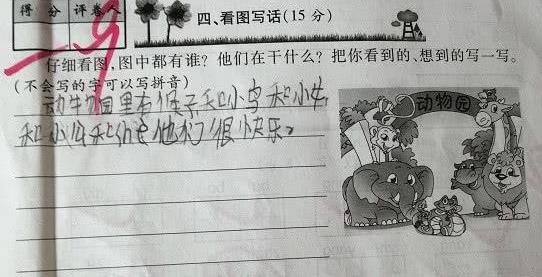 得 分 评卷人
四、看图写话(15 分)
仔细看图,图中都有谁？他们在干什么？把你看到的、想到的写一写。
(不会写的字可以写拼音)
园里有 子和小鸟和小
和小 和 他们很快乐。
动物园